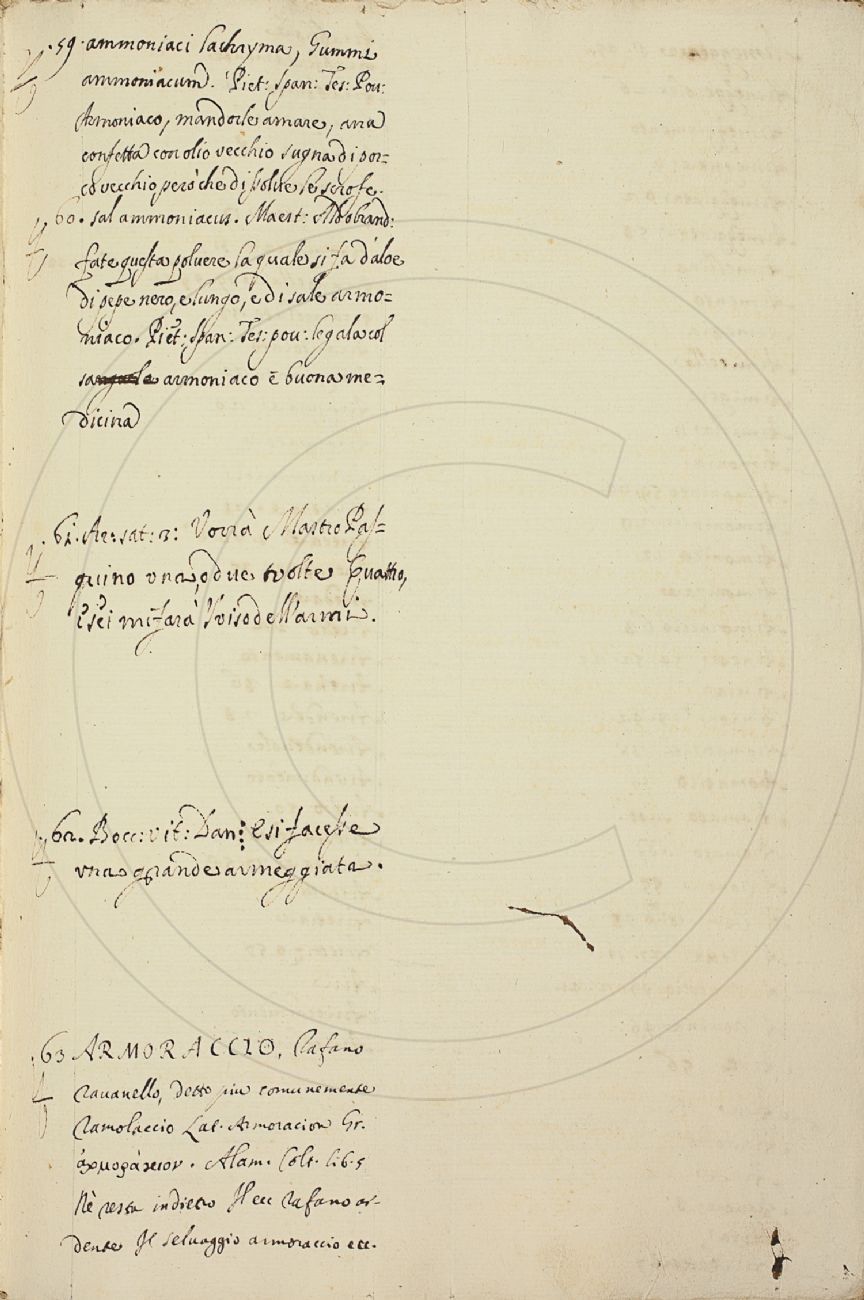 59. ammoniaci lachryma, Gummi
ammoniacum. Piet: Span: Tes: Pov:
Armoniaco, mandorle amare, ana
confetta con olio vecchio sugna di por-
co vecchio però che dissolve le scrofe.
60. sal ammoniacus. Maest: Aldobrand:
fate questa polvere la quale si fa d'aloe
di pepe nero, e lungo, e di sale armo-
niaco. Piet: Span: Tes: pov: legala col
armoniaco è buona me-
dicina
61. Ar: sat: 3: Vorrà Mastro Pas-
quino una, o due volte Quattro,
E sei mi farà l'viso dell'armi.
62. Bocc: vit: Dan: E si facesse
una grande armeggiata.
63 ARMORACCIO, Rafano
Ravanello, detto più comunemente
Ramolaccio Lat. Armoracion Gr.
ἀρμοράκιον. Alam. Colt. lib. 5
Nè resta indietro Il ecc Rafano ar-
dente Il selvaggio armoraccio ecc.